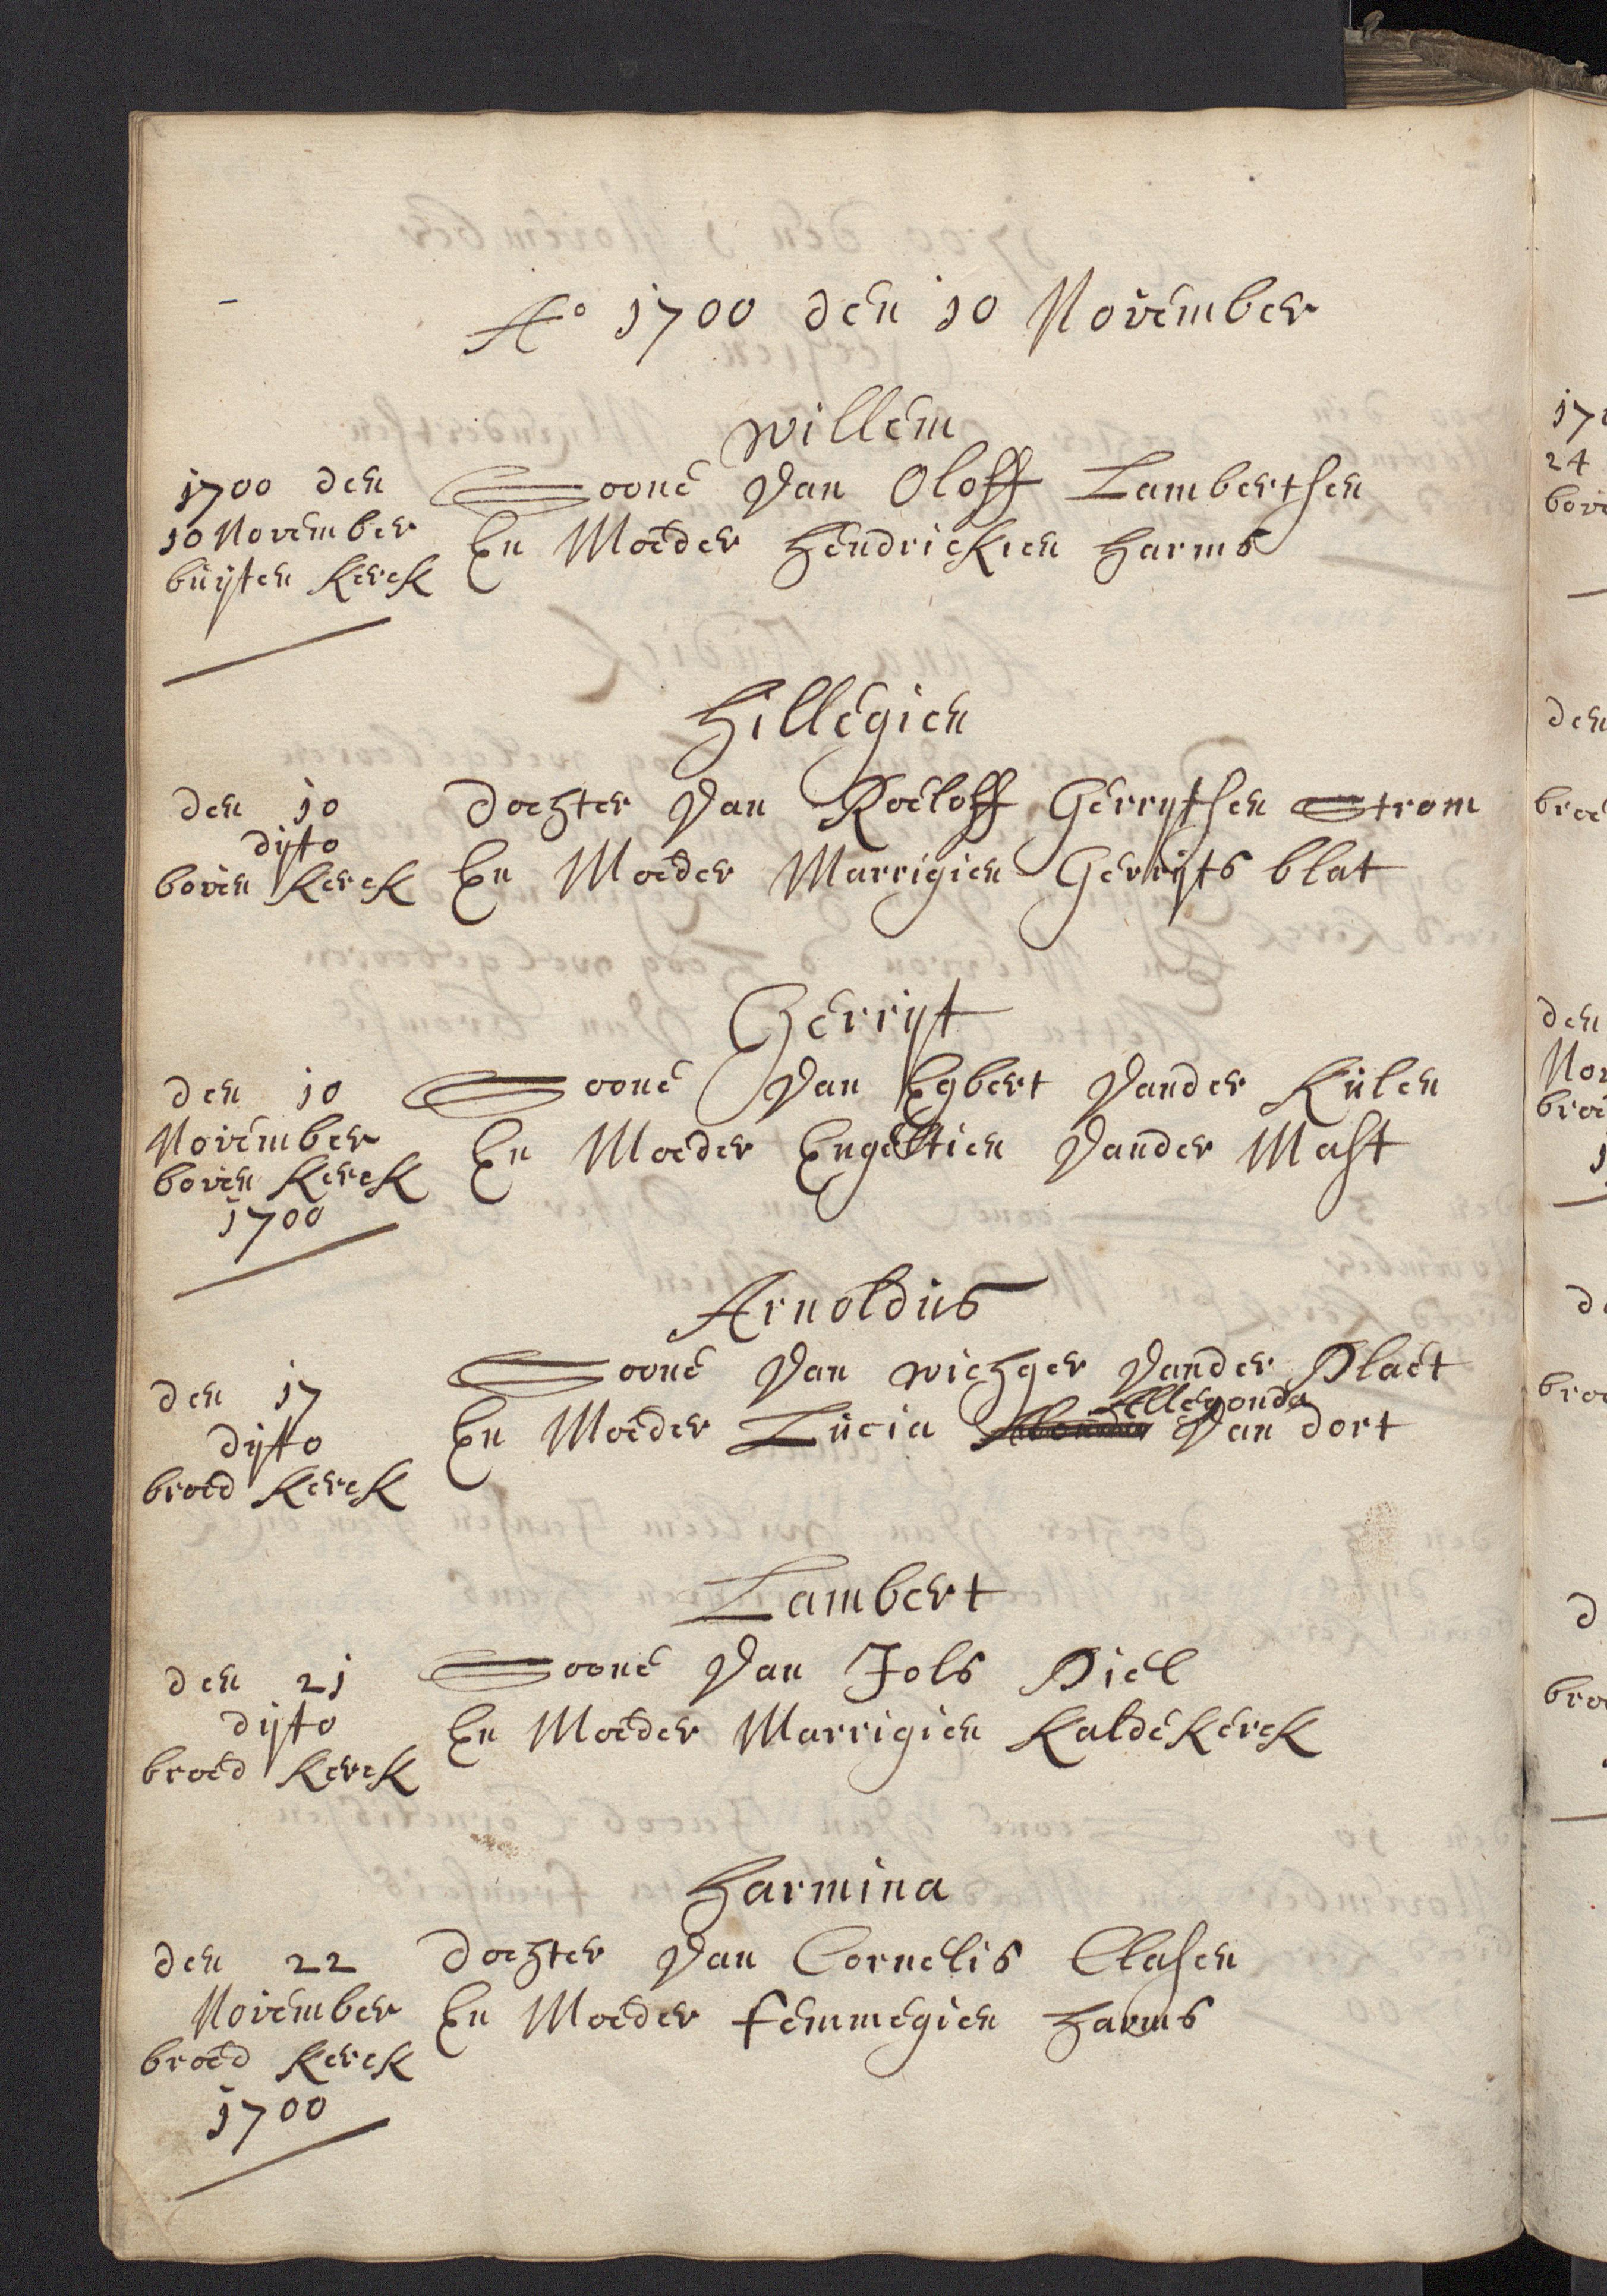 Ao 1700 den 10 November
Willem
1700 den
10 November
buyten Kerck
Soone Van Oloff Lambertsen
En Moeder Hendrickien Harms
Hillegien
den 10
dyto
boven Kerck
Dochter Van Roeloff Gerrytsen Strom
En Moeder Marrigien Gerryts blat
Gerryt
den 10
November
boven Kerck
1700
Soone Van Egbert Vander Kulen
En Moeder Engeltien Vander Mast
Arnoldus
den 17
dyto
broed Kerck
Soone Van Wichger Vander Plaet
Ellegonda
En Moeder Lucia Van dort
Lambert
den 21
dyto
broed Kerck
Soone Van Jols Piel
En Moeder Marrigien KaldeKerck
Harmina
den 22
November
broed Kerck
1700
Dochter Van Cornelis Clasen
En Moeder femmegien Harms